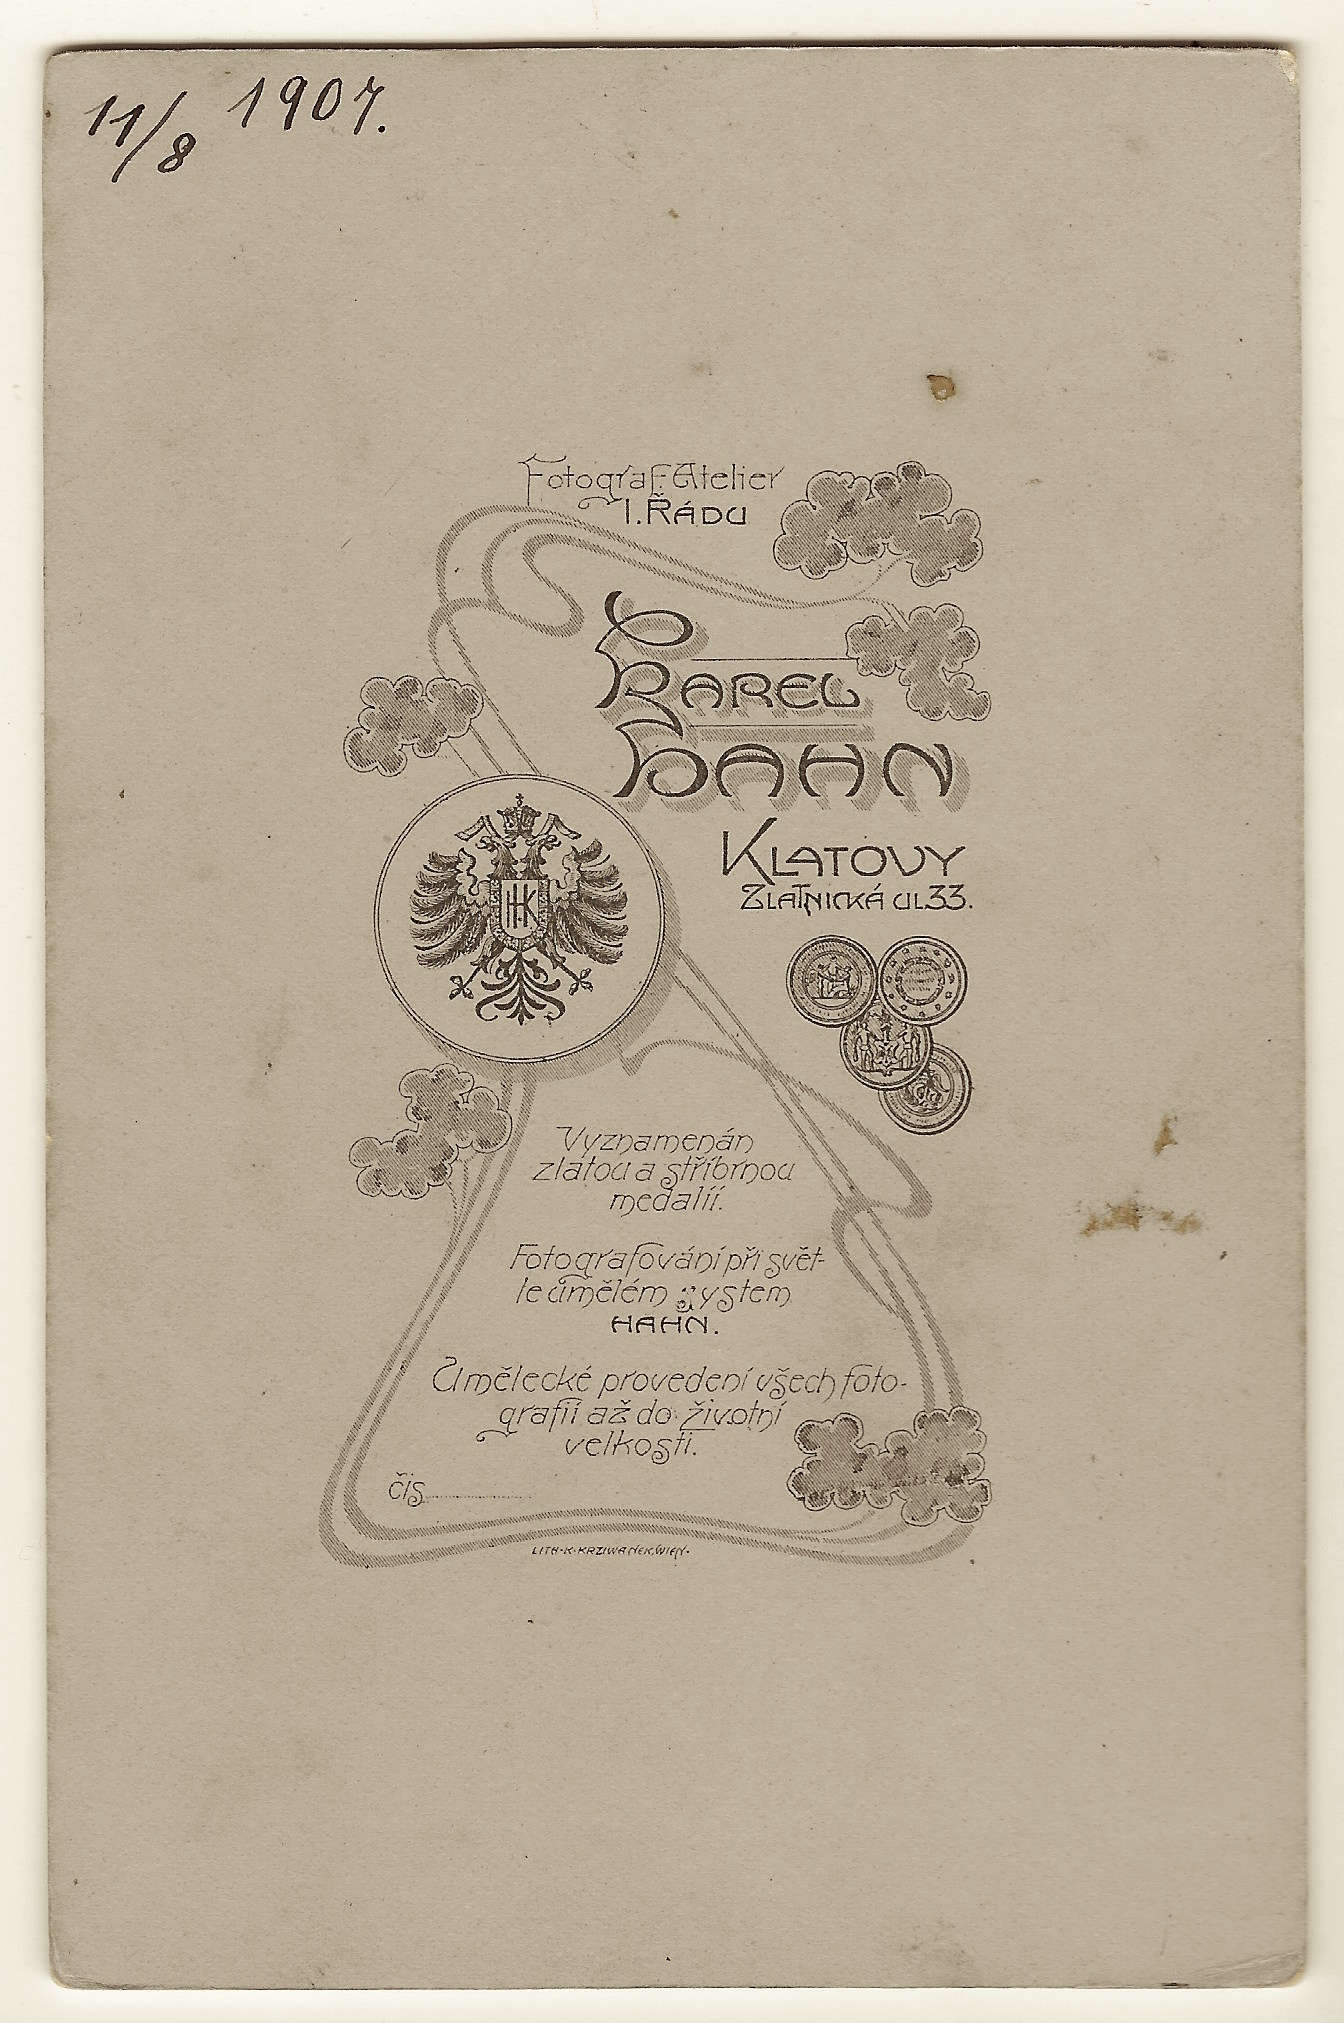 11/8 1907.
Fotograf. Atelier
I. ŘÁDU
KAREL
HAHN
KLATOVY
ZLATNICKÁ UL 33.
HK
Vyznamenán
zlatou a stříbrnou
medalií.
Fotografování při svět-
le umělém system
HAHN.
Umělecké provedení všech foto-
grafií až do životní
velkosti.
čís
LITH. K. KRZIWANEK, WIEN.